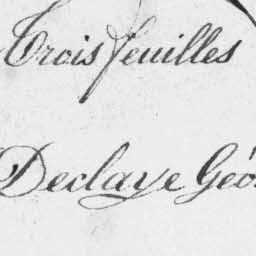 Trois feuilles
Declaye Géo